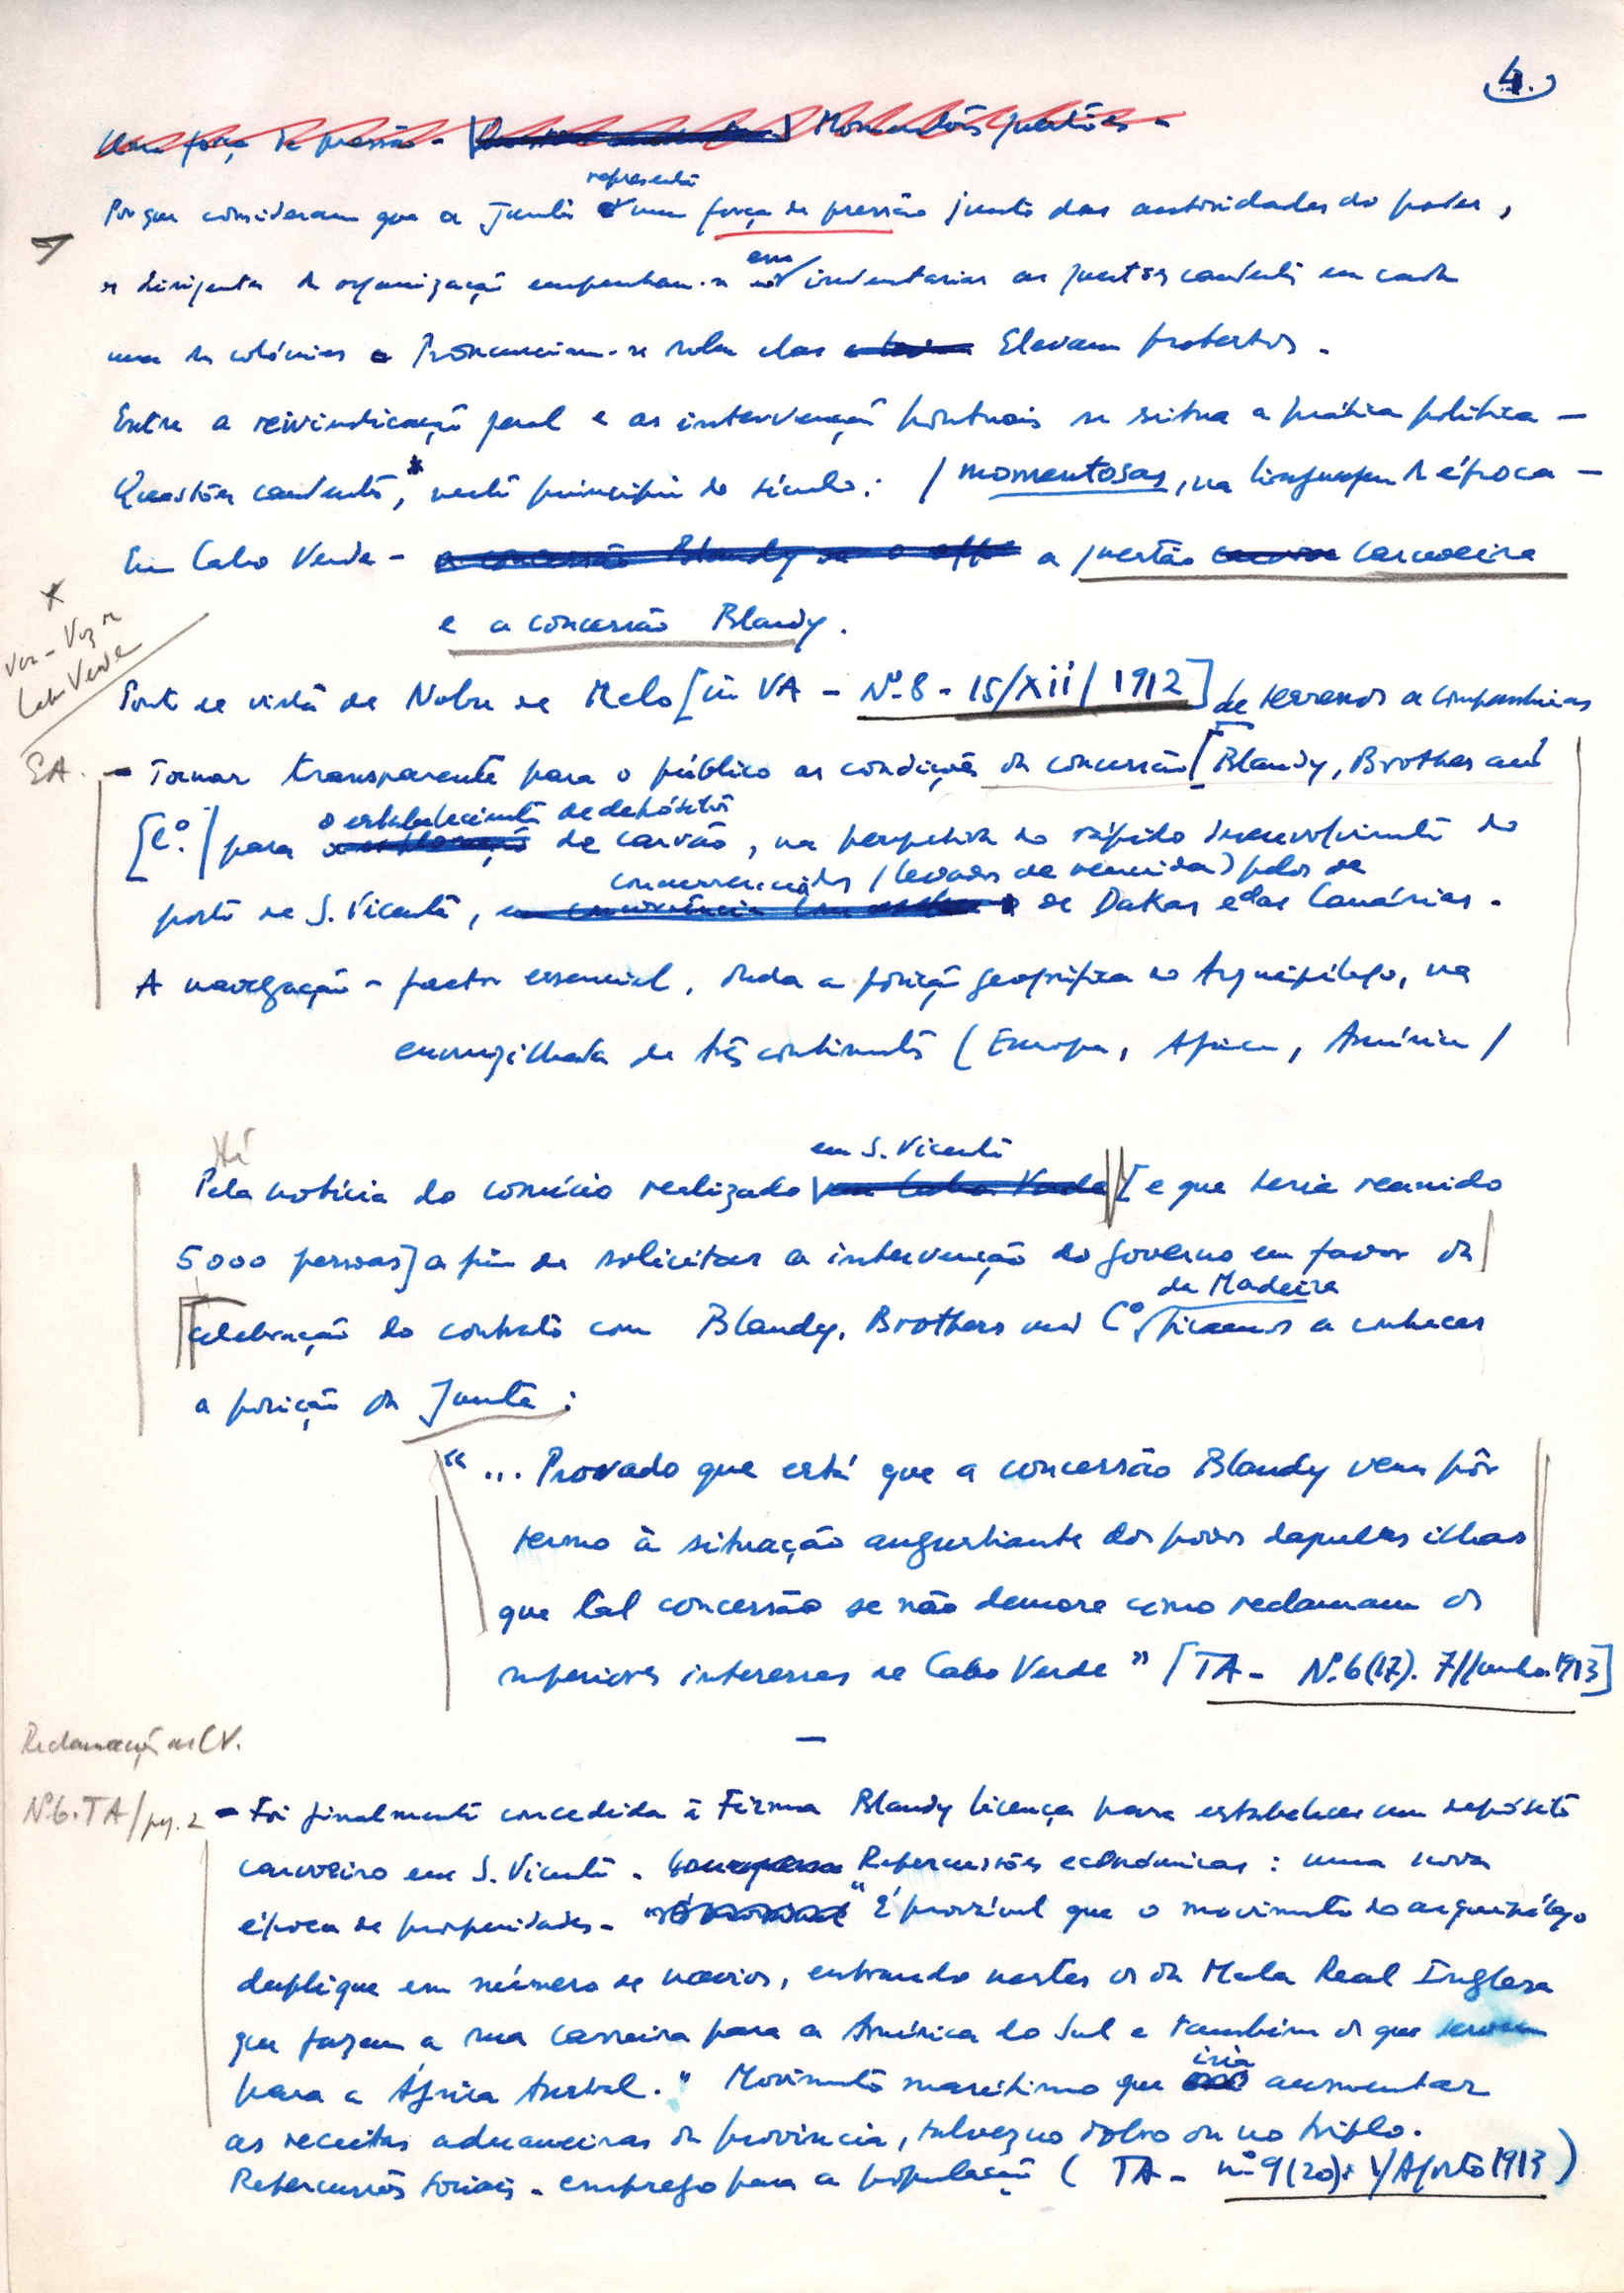 4.
Uma força de pressão - Momentosas questões -
representa
Porque consideram que a Junta é uma força de pressão junto das autoridades do poder,
os dirigentes da organização empenham-se em inventariar as questões candentes em cada
uma das colónias e Pronunciam-se sobre elas Elevam protestos.
Entre a reivindicação geral e as intervenções pontuais se situa a prática política -
Questões candentes, neste princípio do século: / momentosas, na linguagem da época -
Em Cabo Verde - a concessão Blandy a questão carvoeira
e a concessão Blandy.
x
Ver - Voz de
Cabo Verde
Ponto de vista de Nobre de Melo [in VA - Nº 8 - 15/XII/1912] de terrenos a companhias
EA. - Tornar transparente para o público as condições da concessão [Blandy, Brothers and
o estabelecimento de depósitos
[Cº.] para de carvão, na perspectiva do rápido desenvolvimento do
concorrenciados (levados de vencida) pelos de
porto de S. Vicente, de Dakar e das Canárias.
A navegação - factor essencial, dada a posição geográfica do Arquipélago, na
encruzilhada de três continentes (Europa, Africa, América)
Há
em S. Vicente
Pela notícia do comício realizado em Cabo Verde [e que teria reunido
5000 pessoas] a fim de solicitar a intervenção do governo em favor da
da Madeira
celebração do contrato com Blandy, Brothers and Cº ficamos a conhecer
a posição da Junta:
"... Provado que está que a concessão Blandy vem pôr
termo à situação angustiante dos povos daquelas ilhas
que tal concessão se não demore como reclamam os
superiores interesses de Cabo Verde" [TA - Nº 6(17). 7/Junho.1913]
—
Reclamações de CV.
Nº 6. TA/pg. 2 - Foi finalmente concedida à Firma Blandy licença para estabelecer um depósito
carvoeiro em S. Vicente. Repercussões económicas: uma nova
época de prosperidades - "É provável que o movimento do arquipélago
duplique em número de navios, entrando nestes os da Mala Real Inglesa
que fazem a sua carreira para a América do Sul e também os que servem
para a África Austral." Movimento marítimo que iria aumentar
as receitas aduaneiras da província, talvez no dobro ou no triplo.
Repercussões sociais - emprego para a população (TA - nº 9(20): 1/Agosto 1913)